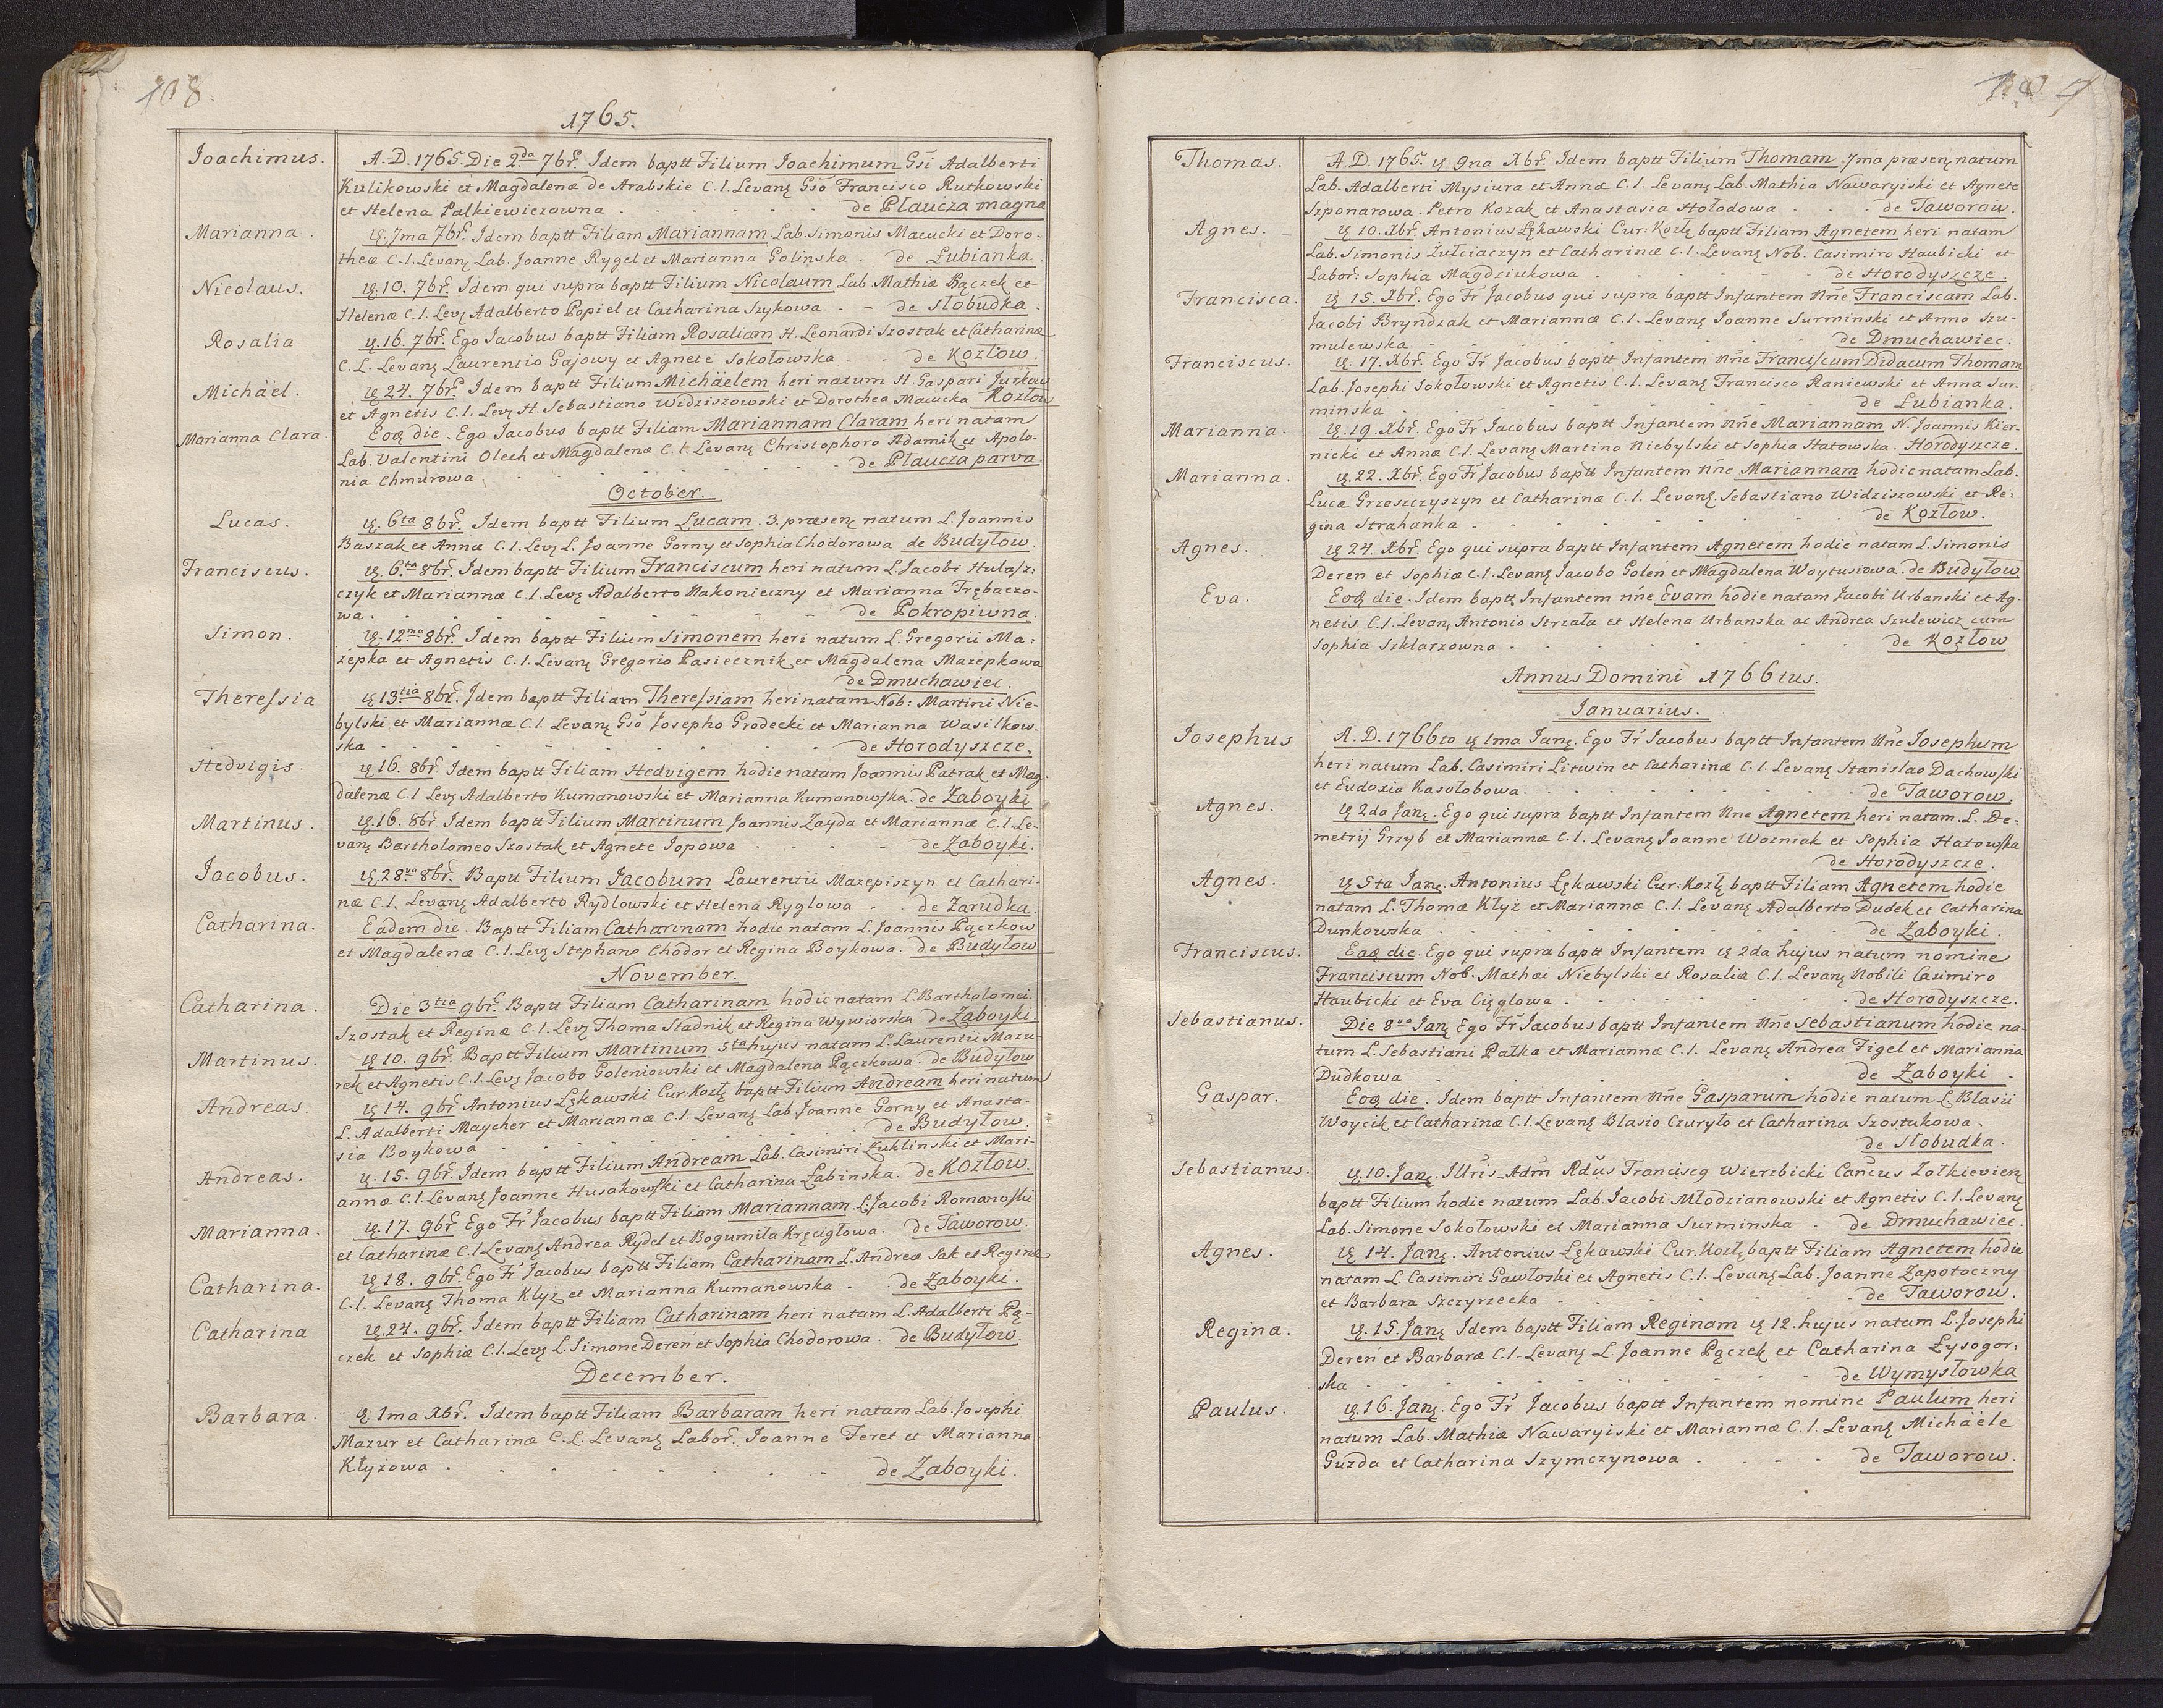 108.
1765.
Joachimus. A. D. 1765. Die 2da 7br. Idem baptt Filium Joachimum Gsi Adalberti
Kulikowski et Magdalenæ de Arabskie C. l. Levanę Gso Francisco Rutkowski
et Helena Palkiewiczowna . de Plaucza magna
Marianna. ię. 7ma 7br. Idem baptt Filiam Mariannam Lab. Simonis Macucki et Doro-
theæ C. l. Levanę Lab. Joanne Rygel et Marianna Golinska . de Łubianka
Nicolaus. ię. 10. 7br. Idem qui supra baptt Filium Nicolaum Lab. Mathiæ Pączek et
Helenæ C. l. Levę Adalberto Popiel et Catharina Szykowa . - de Słobudka.
Rosalia ię. 16. 7br. Ego Jacobus baptt Filiam Rosaliam H. Leonardi Szostak et Catharinæ
C. L. Levanę Laurentio Gajowy et Agnete Sokołowska . de Kozłow.
Michäel. ię 24. 7br. Idem baptt Filium Michäelem heri natum H. Gaspari
et Agnetis C. l. Levę H. Sebastiano Widziszowski et Dorothea Macucka Kozłow
Marianna Clara. Eoą die. Ego Jacobus baptt Filiam Mariannam Claram heri natam
Lab. Valentini Olech et Magdalenæ C. l. Levanę Christophoro Adamik et Apolo-
nia Chmurowa . de Plaucza parva
October.
Lucas. ię. 6ta 8br. Idem baptt Filium Lucam . 3. præsenę natum L. Joannis
Baszak et Annæ C. l. Levę L. Joanne Gorny et Sophia Chodorowa de Budyłow.
Franciscus. ię. 6.ta 8br. Idem baptt Filium Franciscum heri natum L. Jacobi Hulasz:
czyk et Mariannæ C. l. Levę Adalberto Nakonieczny et Marianna Trębaczo-
wa . de Pokropiwna.
Simon. ię. 12ma 8br. Idem baptt Filium Simonem heri natum L. Gregorii Ma:
zepka et Agnetis C. l. Levanę Gregorio Pasiecznik et Magdalena Mazepkowa
de Dmuchawiec.
Theressia ię 13tia 8br. Idem baptt Filiam Theressiam heri natam Nob: Martini Nie-
bylski et Mariannæ C. l. Levanę Gso Josepho Grodecki et Marianna Wasilkow-
ska . de Horodyszcze.
Hedvigis. ię 16. 8br. Idem baptt Filiam Hedvigem hodie natam Joannis Patrak et Mag-
dalenæ C. l Levę Adalberto Kumanowski et Marianna Kumanowska . de Zaboyki
Martinus. ię. 16. 8br. Idem baptt Filium Martinum Joannis Zayda et Mariannæ C. l. Le-
vanę Bartholomeo Szostak et Agnete Popowa . de Zaboyki.
Jacobus. ię, 28va 8br. Baptt Filium Jacobum Laurentii Mazepiszyn et Cathari-
næ C. l. Levanę Adalberto Rydlowski et Helena Ryglowa . de Zarudka.
Catharina. Eadem die. Baptt Filiam Catharinam hodie natam L. Joannis Pączkow
et Magdalenæ C. l. Levę Stephano Chodor et Regina Boykowa . de Budyłow
November.
Catharina. Die 3tia 9br. Baptt Filiam Catharinam hodie natam L. Bartholomei
Szostak et Reginæ C. l. Levę Thoma Stadnik et Regina Wywiorska de Zaboyki.
Martinus. ię 10. 9br. Baptt Filium Martinum 5ta hujus natam L. Laurentii Mazu-
rek et Agnetis C. l. Levę Jacobo Goleniowski et Magdalena Pączkowa . de Budyłow
Andreas. ię 14. 9br Antonius Lękawski Cur. Kozłę baptt Filium Andream heri natum
L. Adalberti Maycher et Mariannæ C. l. Levanę Lab. Joanne Gorny et Anasta-
sia Boykowa . de Budyłow.
Andreas. ię. 15. 9br. Idem baptt Filium Andream Lab. Casimiri Zuklinski et Mari-
annæ C. l. Levanę Joanne Husakowski et Catharina Labinska . de Kozłow.
Marianna. ię. 17. 9br Ego Fr Jacobus baptt Filiam Mariannam L. Jacobi Romanowski
et Catharinæ C. l Levanę Andrea Rydel et Bogumiła Kręcigłowa . de Taworow.
Catharina. ię 18. 9br. Ego Fr Jacobus baptt Filiam Catharinam L. Andreæ Sak et Reginæ
C. l. Levanę Thoma Kłyż et Marianna Kumanowska . de Zaboyki.
Catharina ię. 24. 9br. Idem baptt Filiam Catharinam heri natam L. Adalberti Pą-
czek et Sophiæ C. l. Levę L. Simone Dereń et Sophia Chodorowa . de Budyłow.
December.
Barbara. ię 1ma Xbr. Idem baptt Filiam Barbaram heri natam Lab. Josephi
Mazur et Catharinæ C. L. Levanę Labor. Joanne Feret et Marianna
Kłyżowa . de Zaboyki.
109
Thomas. A. D. 1765. ię 9na Xbr. Idem baptt Filium Thomam . 7ma præsenę natum
Lab. Adalberti Mysiura et Annæ C. l. Levanę Lab. Mathia Nawaryiski et Agnete
Szponarowa . Petro Kozak et Anastasia Hołodowa . de Taworow.
Agnes. ię 10. Xbr. Antonius Lękawski Cur: Kozłę baptt Filiam Agnetem heri natam
Lab. Simonis Zułciaczyn et Catharinæ C. l. Levanę Nob. Casimiro Haubicki et
Labor. Sophia Magdziukowa . de Horodyszcze.
Francisca. ię 15. Xbr. Ego Fr Jacobus qui supra baptt Infantem Nne Franciscam Lab.
Jacobi Bryndzak et Mariannæ C. l. Levanę Joanne Surminski et Anna Szu-
mulewska . de Dmuchawiec.
Franciscus. ię. 17. Xbr. Ego Fr Jacobus baptt Infantem Nne Franciscum Didacum Thomam
Lab. Josephi Sokołowski et Agnetis C. l. Levanę Francisco Raniewski et Anna Sur-
minska . de Łubianka.
Marianna. ię. 19. Xbr. Ego Fr Jacobus baptt Infantem Nne Mariannam N. Joannis Kier-
nicki et Annæ C. l. Levanę Martino Niebylski et Sophia Hatowska . Horodyszcze.
Marianna. ię. 22. Xbr. Ego Fr Jacobus baptt Infantem Nne Mariannam hodie natam Lab.
Lucæ Grzeszczyszyn et Catharinæ C. l. Levanę Sebastiano Widziszowski et Re:
gina Strahanka . de Kozłow.
Agnes. ię 24. Xbr. Ego qui supra baptt Infantem Agnetem hodie natam L. Simonis
Deren et Sophiæ C. l. Levanę Jacobo Goleń et Magdalena Woytusiowa . de Budyłow
Eva. Eoą die. Idem baptę Infantem nne Evam hodie natam Jacobi Urbanski et Ag-
netis C. l. Levanę Antonio Strzała et Helena Urbanska ac Andrea Szulewicz cum
Sophia Szklarzowna . de Kozłow
Annus Domini 1766tus.
Januarius.
Josephus A. D. 1766to ię 1ma Janę. Ego Fr Jacobus baptt Infantem Nne Josephum
heri natum Lab. Casimiri Litwin et Catharinæ C. l. Levanę Stanislao Dachowski
et Eudoxia Kasolobowa . de Taworow.
Agnes. ię 2da Janę. Ego qui supra baptt Infantem Nne Agnetem heri natam . L. De:
metrij Grzyb et Mariannæ C. l. Levanę Joanne Wozniak et Sophia Hatowska
de Horodyszcze.
Agnes. ię 5ta Janę. Antonius Lękawski Cur. Kozłę baptt Filiam Agnetem hodie
natam L. Thomæ Kłyż et Mariannæ C. l. Levanę Adalberto Dudek et Catharina
Dunkowska . de Zaboyki.
Franciscus. Eaą die. Ego qui supra baptt Infantem ię 2da hujus natum nomine
Franciscum Nob. Mathæi Niebylski et Rosaliæ C. l. Levanę Nobili Casimiro
Haubicki et Eva Cięglowa . de Horodyszcze.
Sebastianus. Die 8va Janę Ego Fr Jacobus baptt Infantem Nne Sebastianum hodie na-
tum L. Sebastiani Pałka et Mariannæ C. l. Levanę Andrea Figel et Marianna
Dudkowa . de Zaboyki.
Gaspar. Eoą die. Idem baptt Infantem Nne Gasparum hodie natum L. Blasii
Woycik et Catharinæ C. l. Levanę Blasio Czuryło et Catharina Szostakowa.
de Słobudka.
Sebastianus. ię. 10. Janę. Illris Adm Rdus Franciscq Wierzbicki Cancus Zołkievienę
baptt Filium hodie natum Lab. Jacobi Młodzianowski et Agnetis C. l. Levanę
Lab. Simone Sokołowski et Marianna Surminska . de Dmuchawiec.
Agnes. ię 14. Janę. Antonius Lękawski Cur. Kozłę baptt Filiam Agnetem hodie
natam L. Casimiri Gawłoski et Agnetis C. l. Levanę Lab. Joanne Zapotoczny
et Barbara Szczyrzecka . de Taworow.
Regina. ię. 15. Janę Idem baptt Filiam Reginam ię 12. hujus natam L. Josephi
Dereń et Barbaræ C. l. Levanę L. Joanne Pączek et Catharina Łysogor:
ska . de Wymysłowka
Paulus. ię. 16. Janę. Ego Fr Jacobus baptt Infantem nomine Paulum heri
natum Lab. Mathiæ Nawaryiski et Mariannæ C. l. Levanę Michäele
Guzda et Catharina Szymczynowa . de Taworow.